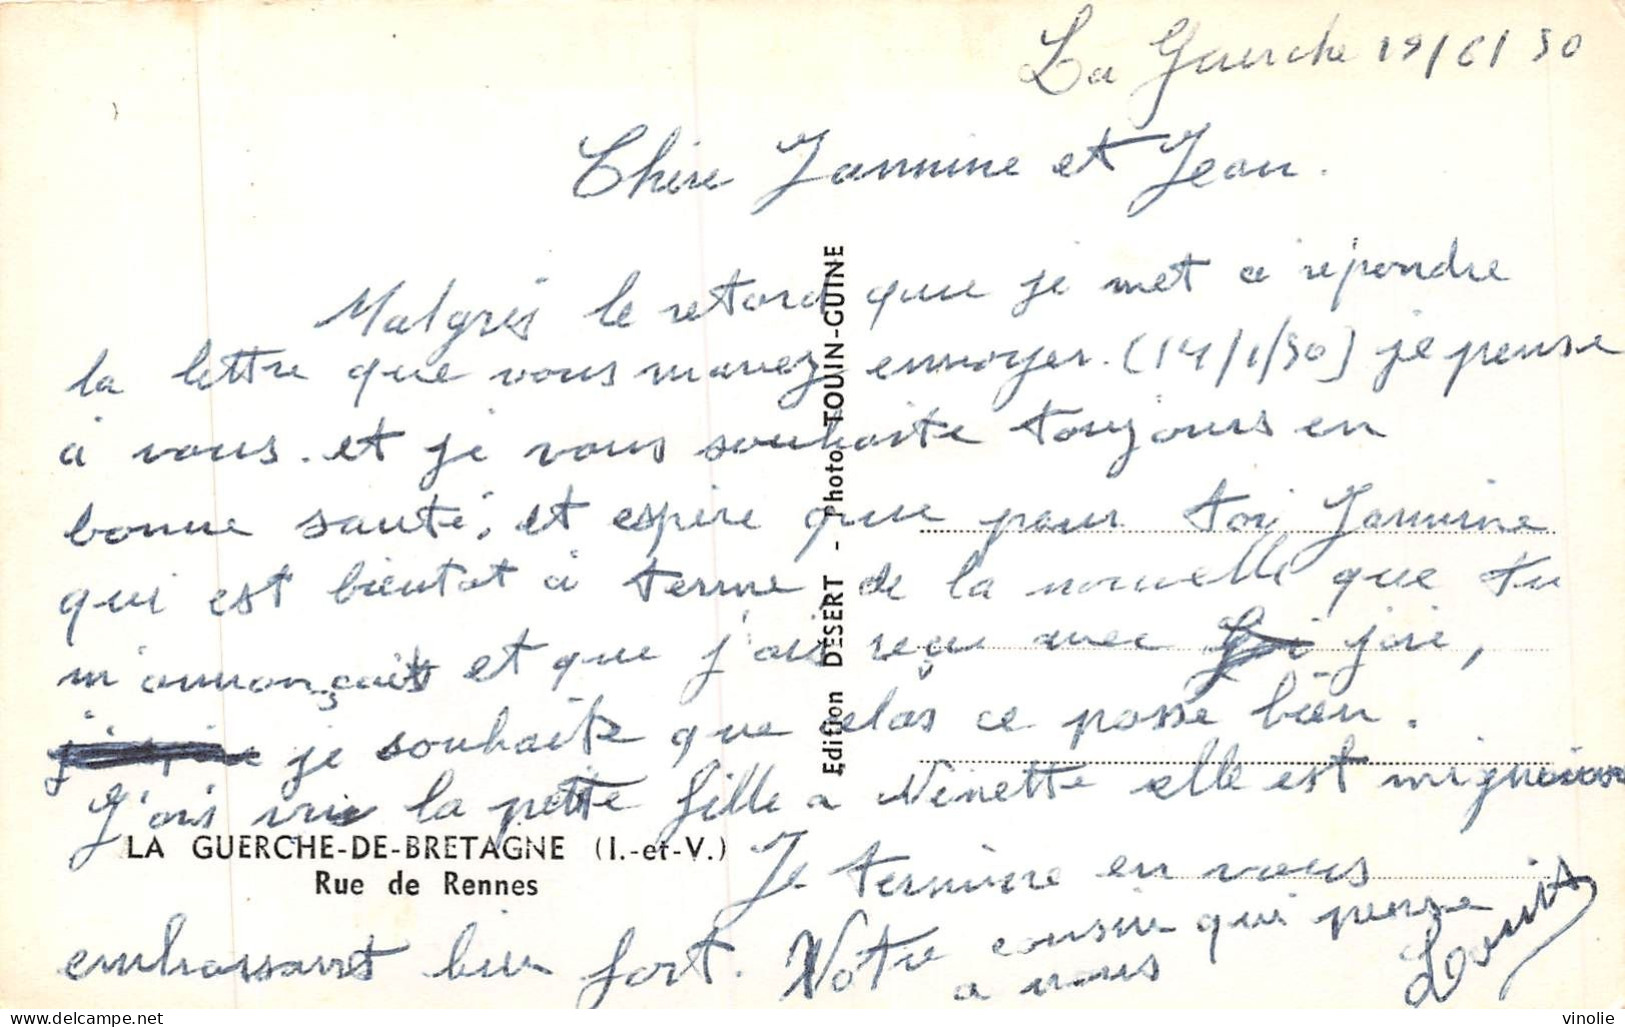 La Guerche 19/6/50
Chère Jannine et Jean.
Malgrés le retard que je met a répondre
la lettre que vous mavez envoyer. (14/1/50) je pense
à vous. et je vous souhaite toujours en
bonne santé, et espère que pour toi Jannine
qui est bientot à terme de la nouvelle que tu
m'annonçait et que j'ais reçu avec joie,
je souhaite que celas ce passe bien.
J'ais vue la petite fille a Ninette elle est
Je termine en vous
embrassant bien fort. Votre cousin qui pense
a vous
Louis
Edition DÉSERT - Photo TOUIN-GUINE
LA GUERCHE-DE-BRETAGNE (I.-et-V.)
Rue de Rennes
vinolie